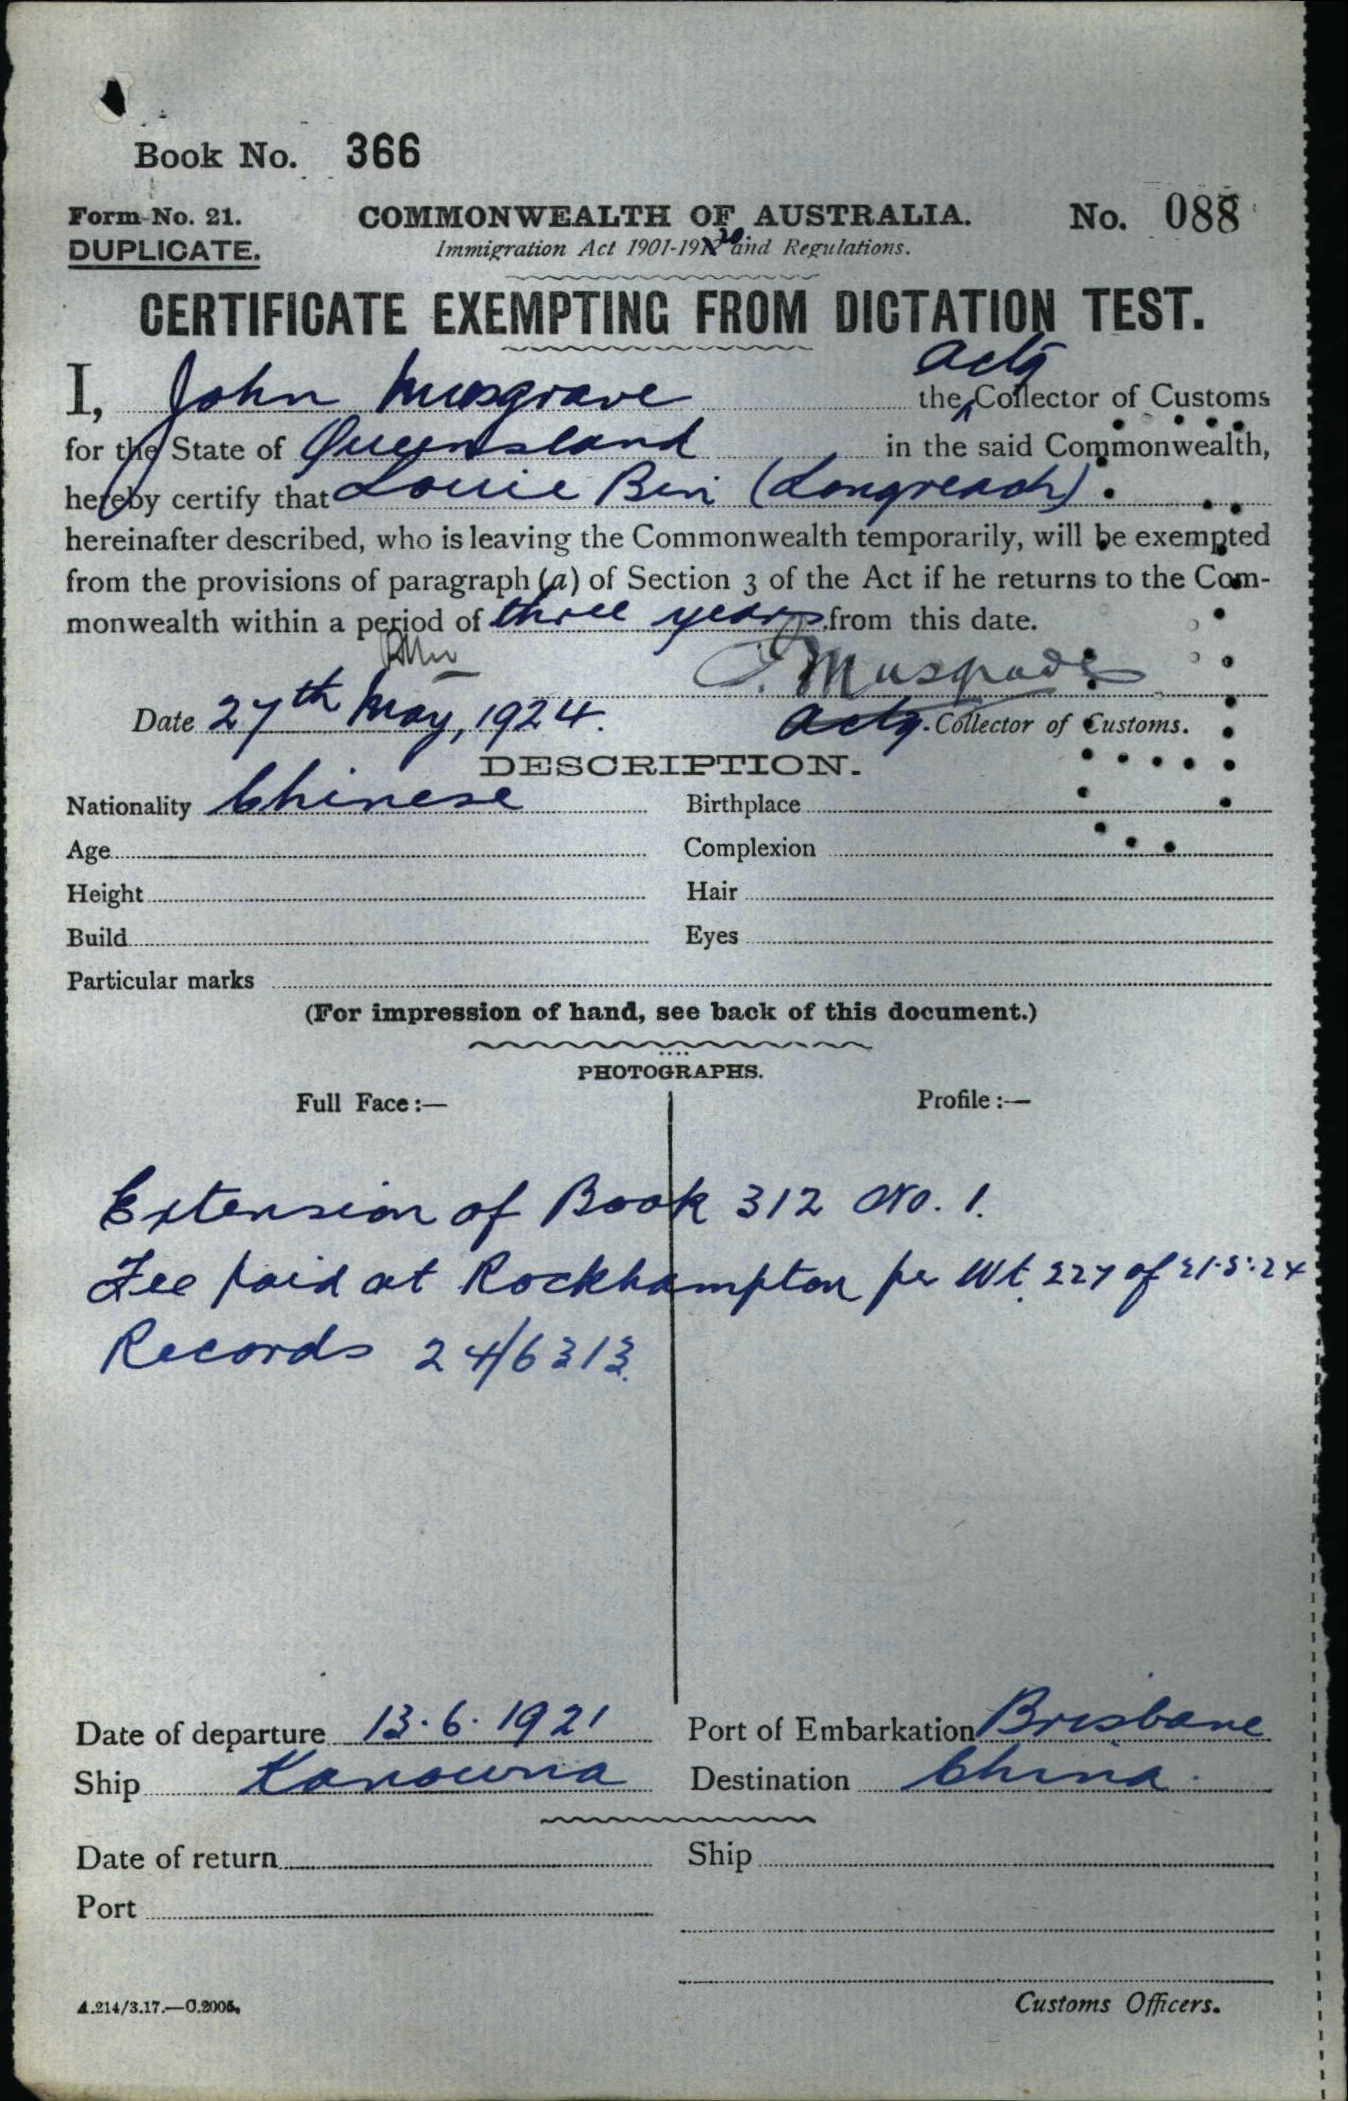 Book No. 366
Form No. 21.
COMMONWEALTH OF AUSTRALIA.
No. 088
DUPLICATE.
Immigration Act 1901-1912 20 and Regulations.
CERTIFICATE EXEMPTING FROM DICTATION TEST.
I, John Musgrave the Actg Collector of Customs
for the State of Queensland in the said Commonwealth,
hereby certify that Louie Bin (Longreach)
hereinafter described, who is leaving the Commonwealth temporarily, will be exempted
from the provisions of paragraph (a) of Section 3 of the Act if he returns to the Com-
monwealth within a period of three years from this date.
J. Musgrave
Date 27th May, 1924.
Actg. Collector of Customs.
DESCRIPTION.
Nationality Chinese
Birthplace
Age
Complexion
Height
Hair
Build
Eyes
Particular marks
(For impression of hand, see back of this document.)
PHOTOGRAPHS.
Full Face:—
Profile:—
Extension of Book 312 No. 1.
Fee paid at Rockhampton per Wt. 227 of 21.5.24
Records 24/6313.
Date of departure 13.6.1921
Port of Embarkation Brisbane
Ship Kanowna
Destination China.
Date of return
Ship
Port
A.214/3.17.—C.2005.
Customs Officers.